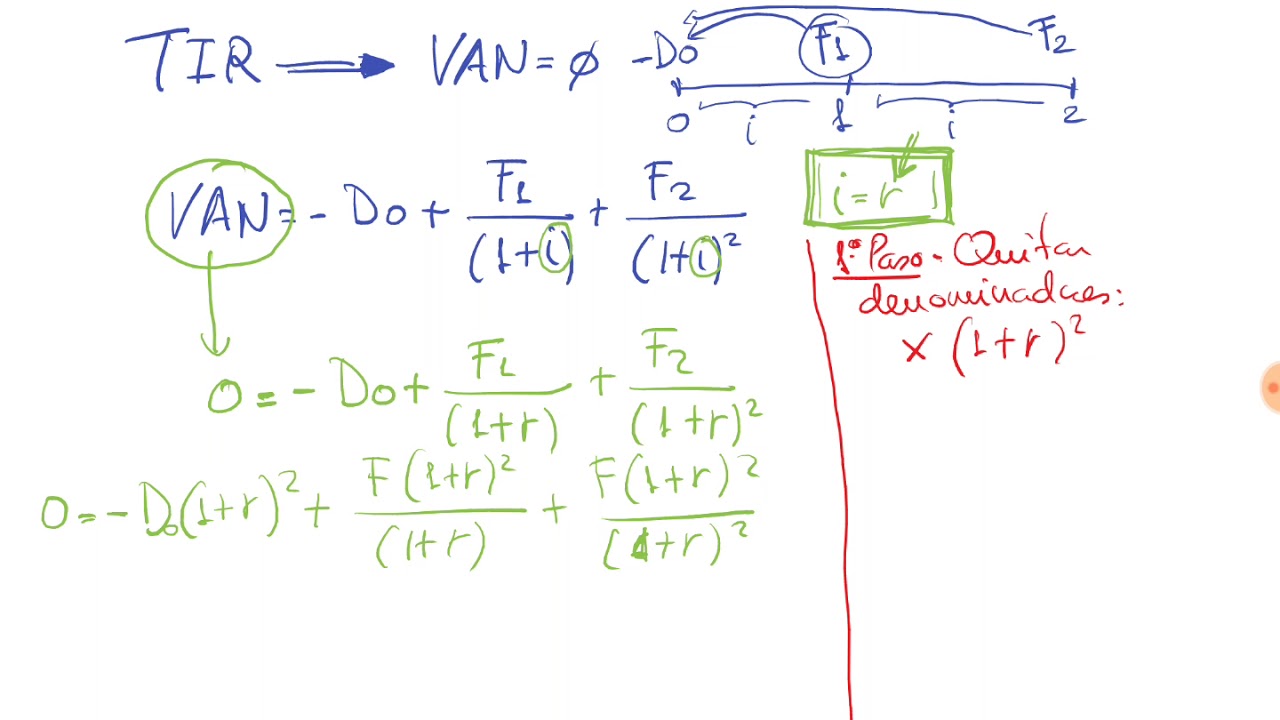 TIR ⟹ VAN = ∅
-Do F1 F2
0 i 1 i 2
VAN = - Do + F1/(1+i) + F2/(1+i)²
i = r
1º Paso - Quitar
denominadores:
× (1+r)²
0 = - Do + F1/(1+r) + F2/(1+r)²
0 = - Do(1+r)² + F(1+r)²/(1+r) + F(1+r)²/(1+r)²